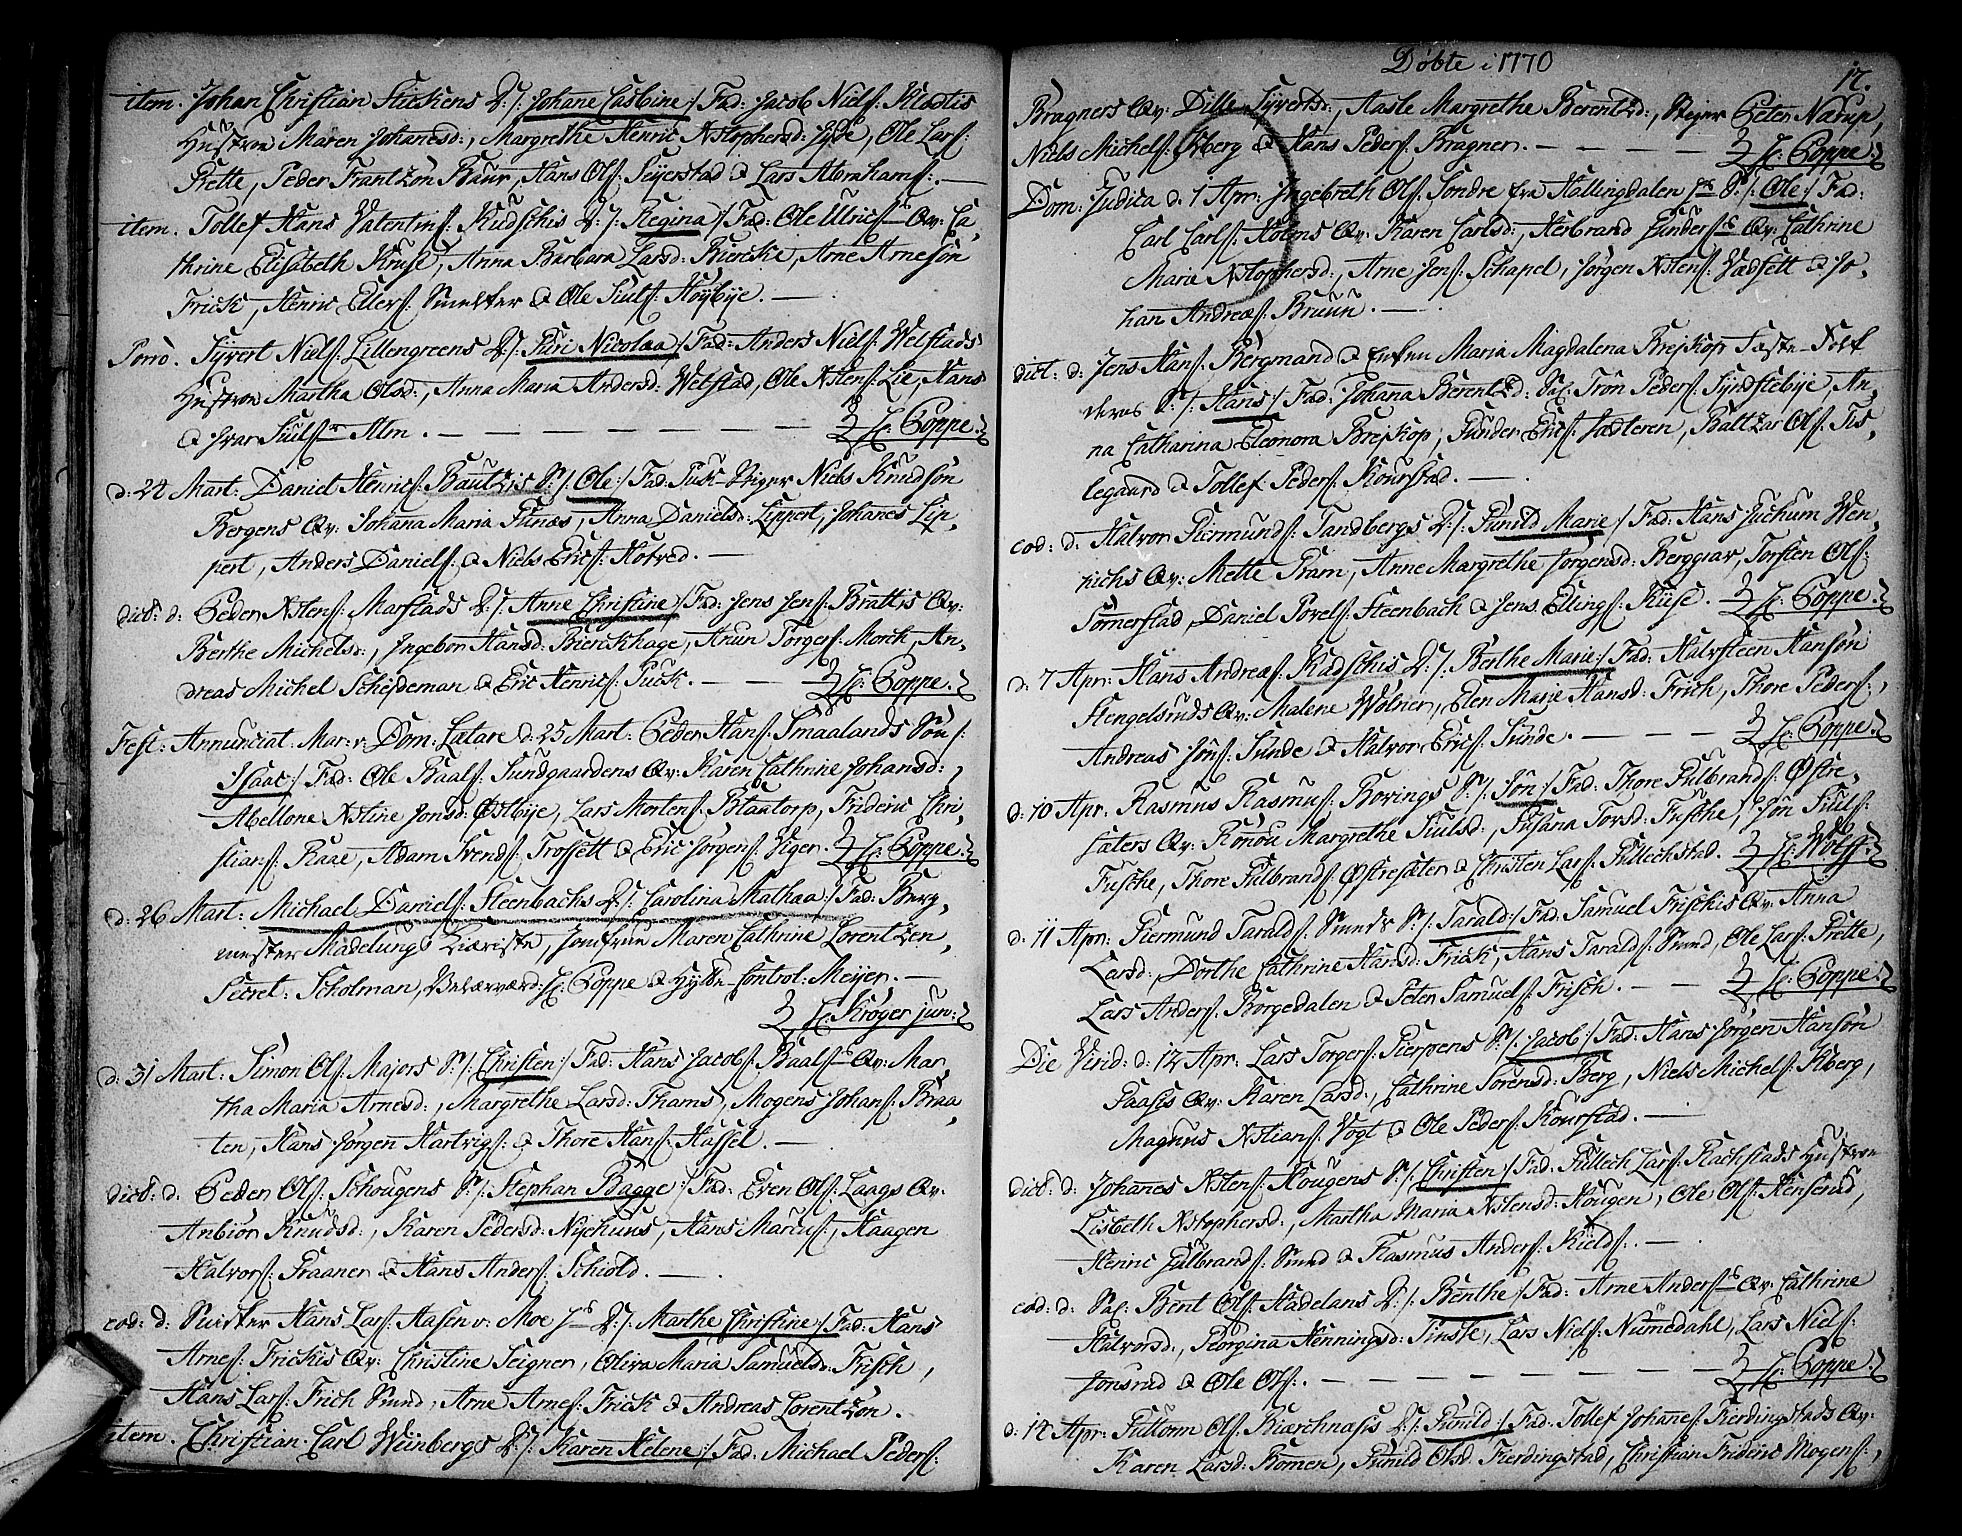 item. Johan Christian Stickens D: /: Johane Casbine :/ Fad: Jacob Niels: Klootis
Hustroe Maren Johansd:, Margrethe Henric Xstophersd: Hyde, Ole Lars:
Prette, Peder Frantzön Baur, Hans Ols: Sejerstad & Lars Abrahams: —
item. Tollef Hans Valentins: Kudschis D: /: Regina :/ Fad: Ole Ulrics: Qv: Ca,
thrine Elisabeth Kruse, Anna Barbara Larsd: Biercke, Arne Arnesön
Frick, Henric Ellers: Smelter & Ole Siuls: Höybye. —
Porrò. Syvert Niels: Lillengreens D: /: Siri Nicolaa :/ Fad: Anders Niels: Welstads
Hustroe Martha Olsd:, Anna Maria Andersd: Welstad, Ole Xstens: Lie, Hans
& Ivar Siuls: Alm. — — — — — — — H: Coppe.
d: 24 Mart: Daniel Henrics: Bautzis S: /: Ole :/ Fad: Puk-Stiger Niels Knudsön
Bergens Qv: Johana Maria Funæs, Anna Danielsd: Lippert, Johanes Lip,
pert, Anders Daniels: & Niels Erics: Hotved. —
dict: d: Peder Xstens: Marstads D: /: Anne Christine :/ Fad: Jens Jens: Brattis Qv:
Berthe Michelsd:, Ingebor Hansd: Bierckhage, Anun Torgers: Morck, An,
dreas Michel Schejdeman & Eric Henrics: Puck. — — — H: Coppe.
Fest: Annunciat: Mar: v: Dom: Lætare d: 25 Mart: Peder Hans: Smaalands Sön /:
Isaac :/ Fad: Ole Paals: Sundgaardens Qv: Karen Cathrine Johansd:,
Abellone Xstine Jonsd: Östbye, Lars Mortens: Blaatorp, Frideric Chri,
stians: Raae, Adam Svends: Trossett & Eric Jörgens: Viger. H: Coppe.
d: 26 Mart: Michael Daniels: Steenbachs D: /: Carolina Mathaa :/ Fad: Berg,
mester Madelungs Kiæreste, Jomfrue Maren Cathrine Lorentzen,
Secret: Scholman, H: Coppe & Hytte-Control: Meyer. —
H: Kröyer jun:
d: 31 Mart: Simon Ols: Majors S: /: Christen :/ Fad: Hans Jacobs: Paals: Qv: Mar,
tha Maria Arnesd:, Margrethe Larsd: Thams, Mogens Johans: Braa
ten, Hans Jörgen Hartvigs: & Thore Hans: Hassel. —
dict: d: Peder Ols: Schougens S: /: Stephan Bagge :/ Fad: Even Ols: Laags Qv:
Anbiör Knudsd:, Karen Pedersd: Nyehuus, Hans Marcus:, Haagen
Halvors: Praaner & Hans Anders: Schiold. —
eod: d: Smister Hans Lars: Aasen v: Moe D: /: Marthe Christine :/ Fad: Hans
Arnes: Frickis Qv: Christine Seigner, Oliva Maria Samuelsd: Frisch,
Hans Lars: Frich Smed, Arne Arnes: Frick & Andreas Lorentzön.
item. Christian Carl Weinbergs D: /: Karen Helene :/ Fad: Michael Peders:
Döbte i 1770
17.
Bragners Qv: Dille Syvertsd:, Aasle Margrethe Berentzd:, Stiger Peter Narup,
Niels Michels: Kberg & Hans Peders: Bragner. — — — — H: Coppe.
Dom: Judica d: 1 Apr: Ingebreth Ols: Sondre fra Hallingdalen S: /: Ole :/ Fad:
Carl Carls: Holens Qv: Karen Carlsd:, Herbrand Gunders: Qv: Cathrine
Maria Xstophersd:, Arne Jens: Schapel, Jörgen Xstens: Vadsett & Jo,
han Andreæs: Bruun. —
dict: d: Jens Hans: Bergmand & Enken Maria Magdalena Brejkop Fæste-Folk
deres S: /: Hans :/ Fad: Johana Berentzd: Sal: Trön Peders: Syndstebye, An,
na Catharina Eleonora Brejkop, Gunder Erics: Sadleren, Baltzar Ols: Tis,
legaard & Tollef Peders: Kourstad. —
eod: d: Halvor Giermunds: Sandbergs D: /: Gunild Marie :/ Fad: Hans Juchum Wen,
richs Qv: Mette Pram, Anne Margrethe Jörgensd: Berggrav, Torsten Ols:
Somerstad, Daniel Povels: Steenbach & Jens Ellings: Kiise. H: Coppe.
d: 7 Apr: Hans Andreæs: Kadschis D: /: Berthe Marie :/ Fad: Halvsteen Hansön
Stengelsruds Qv: Malene Wölner, Elen Marie Hansd: Frich, Thore Peders:,
Andreas Jöns: Sunde & Halvor Erics: Sunde. — — — H: Coppe.
d: 10 Apr. Rasmus Rasmus: Bovings S: /: Jön :/ Fad: Thore Gulbrands: Östre,
sæters Qv: Rönou Margrethe Siulsd:, Susana Torsd: Fuschè, Jön Siuls:
Fuschè, Thore Gulbrands: Östresæter & Christen Lars: Gullechstad. H: Wolff.
d: 11 Apr: Giermund Taralds: Smeds S: /: Tarald :/ Fad: Samuel Frischis Qv: Anna
Larsd:, Dorthe Cathrine Hansd: Frick, Hans Taralds: Smed, Ole Lars: Prette,
Lars Anders: Borgedalen & Peter Samuels: Frisch. — — H: Coppe.
Die Virid: d: 12 Apr: Lars Torgers: Gierpens S: /: Jacob :/ Fad: Hans Jörgen Hansön
Faasis Qv: Karen Larsd:, Cathrine Sörensd: Berg, Niels Michels: Kberg,
Magnus Xstians: Vogt & Ole Peders: Kourstad. —
dict: d: Johanes Xstens: Hougens S: /: Christen :/ Fad: Gullech Lars: Rachstads Hustroe
Lisbeth Xstophersd:, Martha Maria Xstensd: Hougen, Ole Ols: Henserud,
Henric Gulbrands: Smed & Rasmus Anders: Kields:. —
eod: d: Sal: Bent Ols: Hadelans D: /: Benthe :/ Fad: Arne Anders: Qv: Cathrine
Halvorsd:, Georgina Henningsd: Sinsse, Lars Niels: Numedahl, Lars Niels:
Jonsrud & Ole Ols:. — — — — — — H: Coppe.
d: 14 Apr: Guttorm Ols: Kiarchnasis D: /: Gunild :/ Fad: Tollef Johanes: Fierdingstads Qv:
Karen Larsd: Bomen, Gunild Olsd: Fierdingstad, Christian Frideric Mogens:,